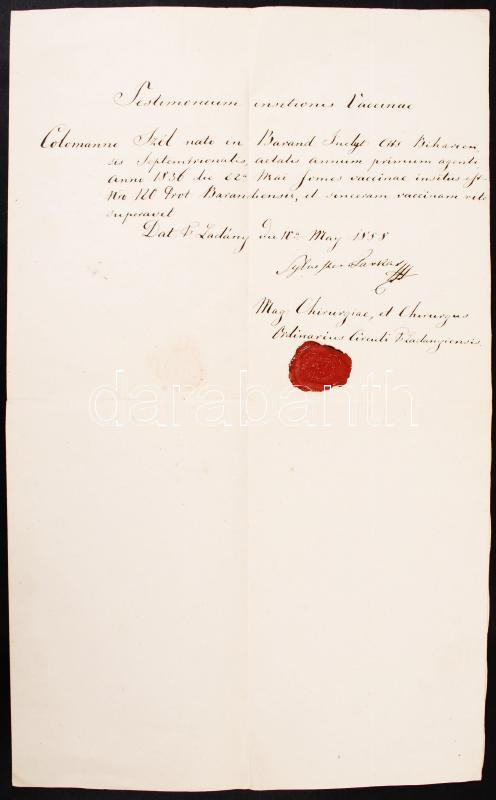 Testimonium insitionis Vaccinae
Colomanno Szél nato in Barand Inclyt Cotts Biharien
sis Septemtrionales, aetatis annum primum agenti
anno 1836 die 22a Mai fomes vaccinae insitus est
Nro 120 Prot Barandiensis, et sinceram vaccinam rite
superavit
Dat P Ladány die 10a May 1838
Sylvester Farkas
Mag Chirurgiae, et Chirurgus
Ordinarius Circuli P Ladanyiensis.
darabanth